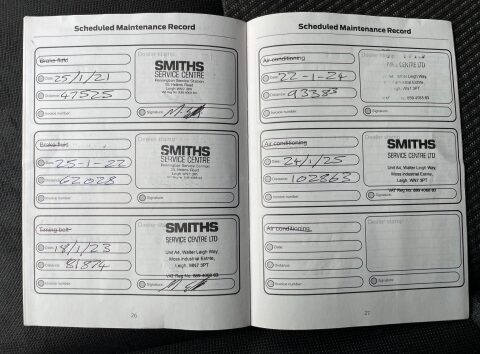 Scheduled Maintenance Record
Brake fluid
Dealer stamp
Date: 25/1/21
Distance: 47525
Invoice number
Signature:
SMITHS
SERVICE CENTRE
Pennington Service Station
Leigh WN7
Brake fluid
Dealer stamp
Date: 25-1-22
Distance: 62028
Invoice number
Signature:
SMITHS
SERVICE CENTRE
Timing belt
Date: 18/1/23
Distance: 81874
Invoice number
Signature:
SMITHS
SERVICE CENTRE LTD
Unit A4, Walter Leigh Way,
Moss Industrial Estate,
Leigh, WN7 3PT
VAT Reg No: 889 4068 83
26
Scheduled Maintenance Record
Air conditioning
Dealer stamp
Date: 22-1-24
Distance: 93385
Invoice number
Signature:
CENTRE LTD
Leigh Way,
Estate,
WN7 3PT
Air conditioning
Date: 24/1/25
Distance: 102863
Invoice number
Signature:
SMITHS
SERVICE CENTRE LTD
Unit A4, Walter Leigh Way,
Moss Industrial Estate,
Leigh, WN7 3PT
VAT Reg No: 889 4068 83
Air conditioning
Dealer stamp
Date:
Distance:
Invoice number
Signature:
27